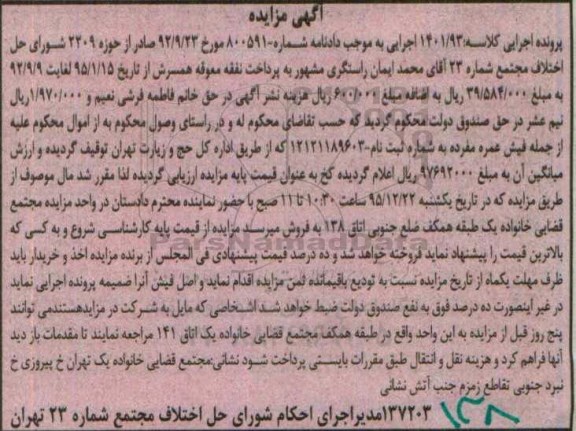 آگهی مزایده
پرونده اجرایی کلاسه:۱۴۰۱/۹۳ اجرایی به موجب دادنامه شماره-۸۰۰۵۹۱ مورخ ۹۲/۹/۲۳ صادر از حوزه ۲۳۰۹ شورای حل
اختلاف مجتمع شماره ۲۳ آقای محمد ایمان راستگری مشهور به پرداخت نفقه معوقه همسرش از تاریخ ۹۵/۱/۱۵ لغایت ۹۲/۹/۹
به مبلغ ۳۹/۵۸۴/۰۰۰ ریال به اضافه مبلغ ۶۰۰/۰۰۰ ریال هزینه نشر آگهی در حق خانم فاطمه فرشی نعیم و ۱/۹۷۰/۰۰۰ریال
نیم عشر در حق صندوق دولت محکوم گردید که حسب تقاضای محکوم له و در راستای وصول محکوم به از اموال محکوم علیه
از جمله فیش عمره مفرده به شماره ثبت نام-۱۲۱۲۱۱۸۹۶۰۳ که از طریق اداره کل حج و زیارت تهران توقیف گردیده و ارزش
میانگین آن به مبلغ ۹۷۶۹۲۰۰۰ ریال اعلام گردیده کخ به عنوان قیمت پایه مزایده ارزیابی گردیده لذا مقرر شد مال موصوف از
طریق مزایده که در تاریخ یکشنبه ۹۵/۱۲/۲۲ ساعت ۱۰:۳۰ تا ۱۱ صبح با حضور نماینده محترم دادستان در واحد مزایده مجتمع
قضایی خانواده یک طبقه همکف ضلع جنوبی اتاق ۱۳۸ به فروش میرسد مزایده از قیمت پایه کارشناسی شروع و به کسی که
بالاترین قیمت را پیشنهاد نماید فروخته خواهد شد و ده درصد قیمت پیشنهادی فی المجلس از برنده مزایده اخذ و خریدار باید
ظرف مهلت یکماه از تاریخ مزایده نسبت به تودیع باقیمانده ثمن مزایده اقدام نماید و اصل فیش آنرا ضمیمه پرونده اجرایی نماید
در غیر اینصورت ده درصد فوق به نفع صندوق دولت ضبط خواهد شد اشخاصی که مایل به شرکت در مزایدهستندمی توانند
پنج روز قبل از مزایده به این واحد واقع در طبقه همکف مجتمع قضایی خانواده یک اتاق ۱۴۱ مراجعه نمایند تا مقدمات باز دید
آنها فراهم کرد و هزینه نقل و انتقال طبق مقررات بایستی پرداخت شود نشانی-مجتمع قضایی خانواده یک تهران خ پیروزی خ
نبرد جنوبی تقاطع زمزم جنب آتش نشانی
۱۳۷۲۰۳مدیراجرای احکام شورای حل اختلاف مجتمع شماره ۲۳ تهران
ParsNamadData